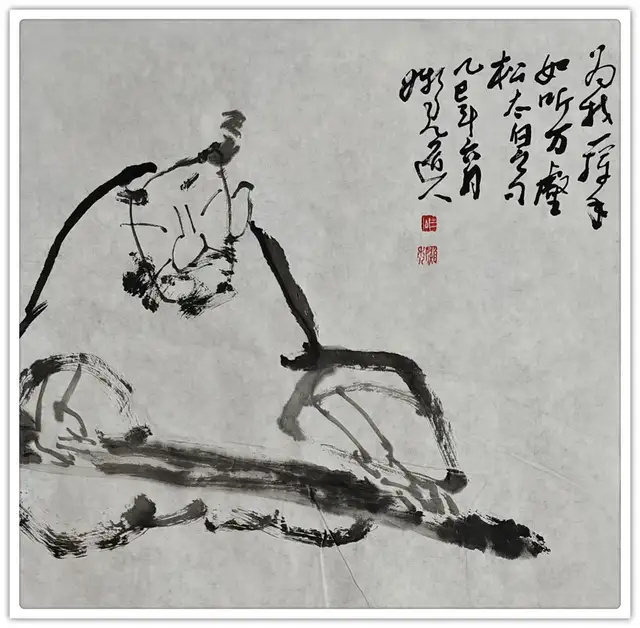 为我一挥手
如听万壑
松太白之句
乙巳年六月
道人